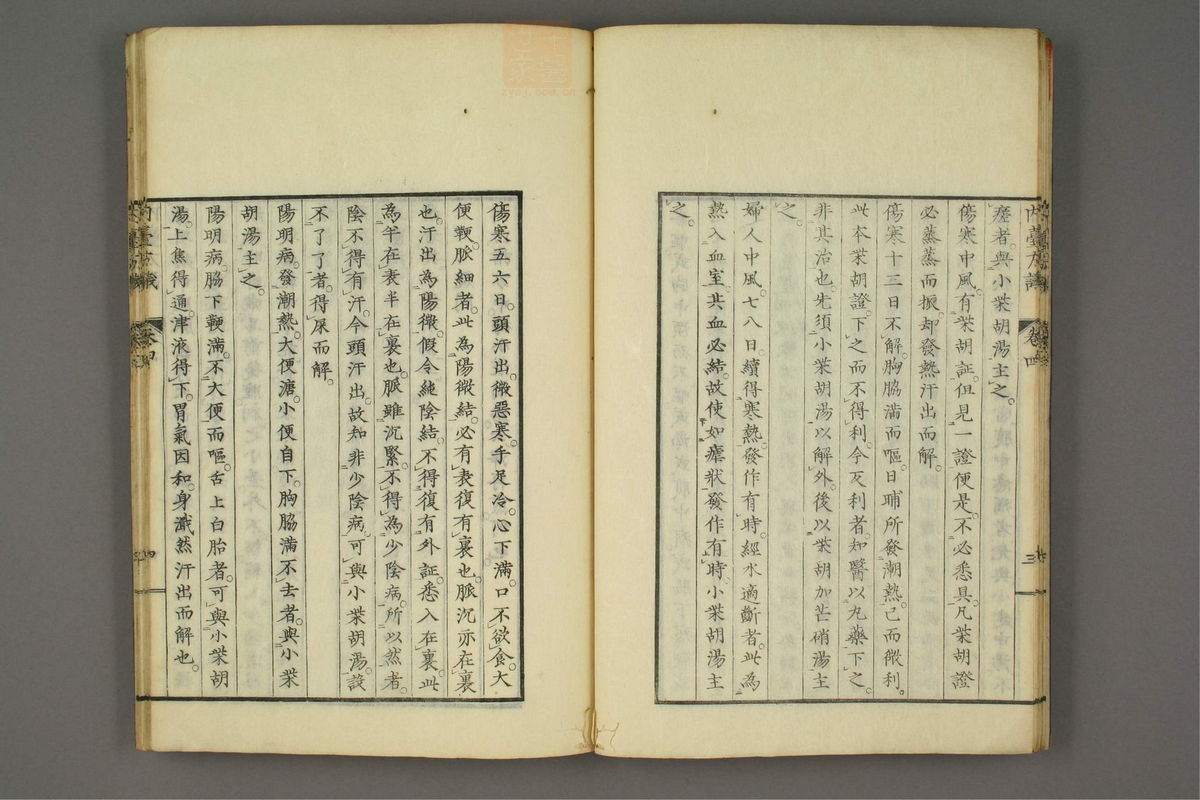 瘥者。與小柴胡湯主之。
傷寒中風。有柴胡証。但見一證便是。不必悉具。凡柴胡證
必蒸蒸而振。却發熱汗出而解。
傷寒十三日不解。胸脇滿而嘔。日晡所發潮熱。已而微利。
此本柴胡證。下之而不得利。今反利者。知醫以丸藥下之。
非其治也。先須小柴胡湯以解外。後以柴胡加芒硝湯主
之。
婦人中風。七八日。續得寒熱。發作有時。經水適斷者。此為
熱入血室。其血必結。故使如瘧狀。發作有時。小柴胡湯主
之。
傷寒五六日。頭汗出。微惡寒。手足冷。心下滿。口不欲食。大
便鞕。脈細者。此為陽微結。必有表復有裏也。脈沉亦在裏
也。汗出為陽微。假令純陰結。不得復有外証。悉入在裏。此
為半在表半在裏也。脈雖沉緊。不得為少陰病。所以然者。
陰不得有汗。今頭汗出。故知非少陰病。可與小柴胡湯。設
不了了者。得屎而解。
陽明病。發潮熱。大便溏。小便自下。胸脇滿不去者。與小柴
胡湯主之。
陽明病。脇下鞕滿。不大便而嘔。舌上白胎者。可與小柴胡
湯。上焦得通。津液得下。胃氣因和。身濈然汗出而解也。
卷四